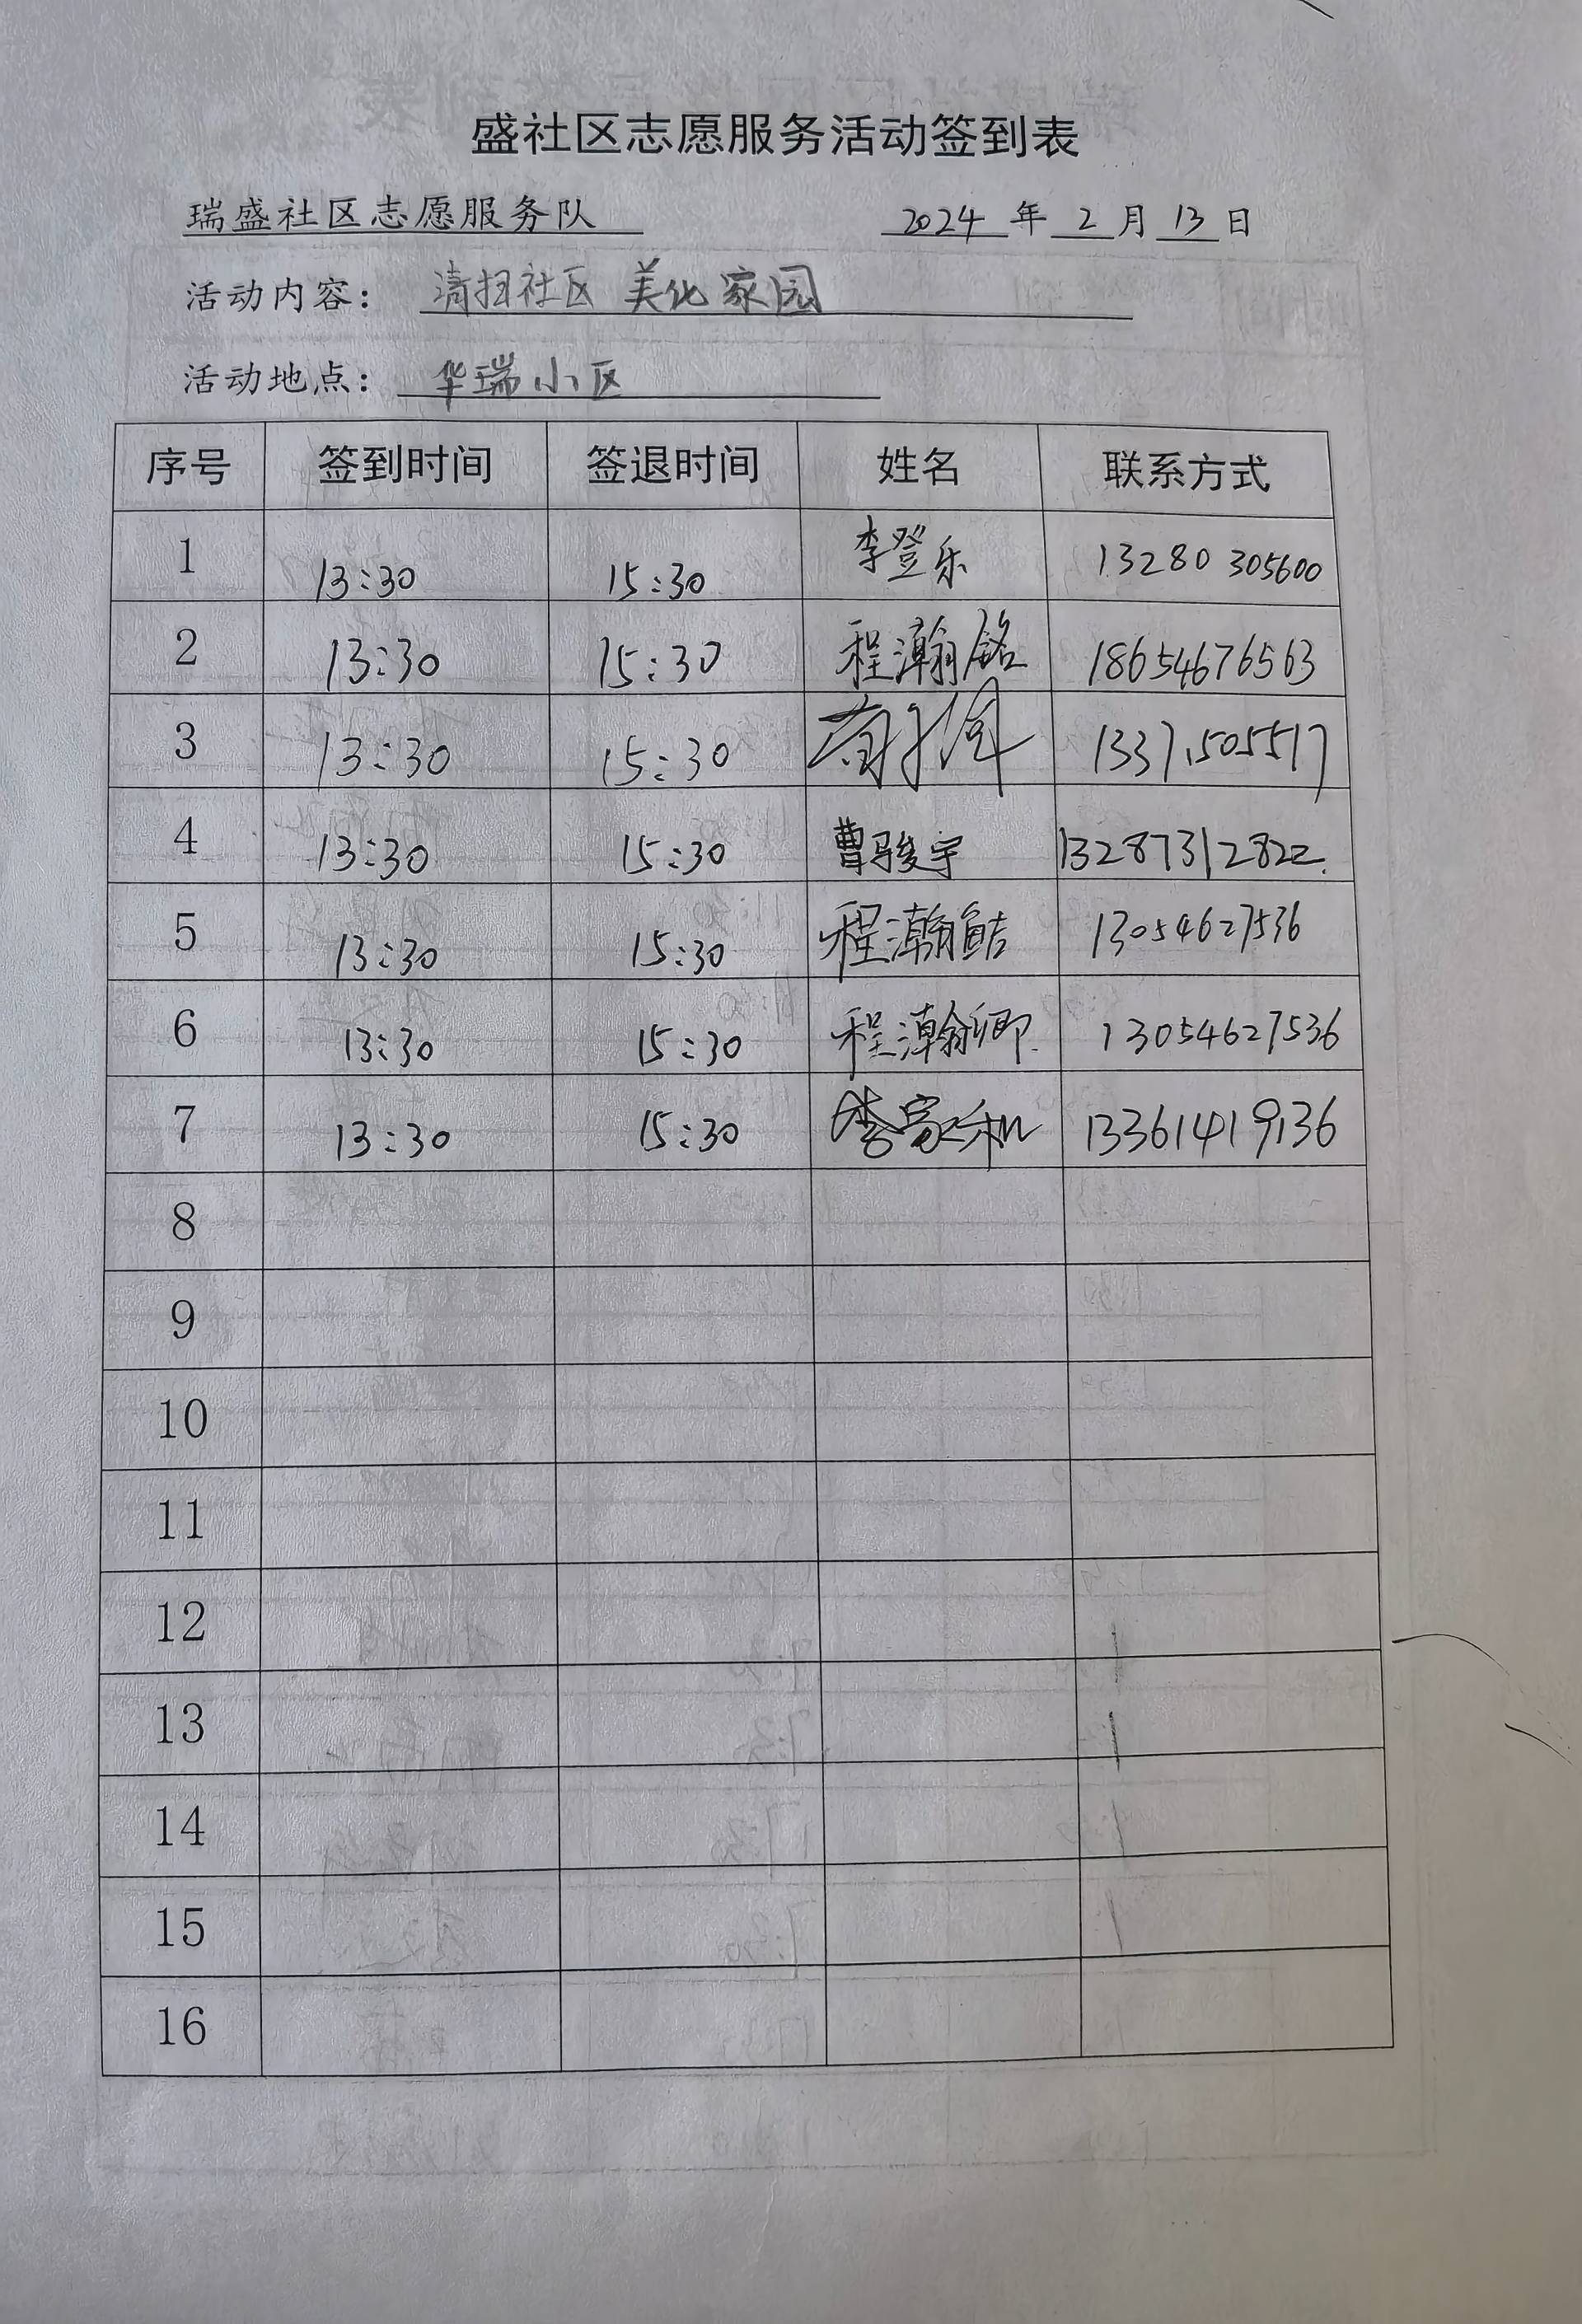 盛社区志愿服务活动签到表
瑞盛社区志愿服务队 2024 年 2 月 13 日
活动内容: 清扫社区 美化家园
活动地点: 华瑞小区
序号 签到时间 签退时间 姓名 联系方式
1 13:30 15:30 李登乐 13280 305600
2 13:30 15:30 程瀚铭 18654676563
3 13:30 15:30 13371505517
4 13:30 15:30 曹骏宇 13287312822
5 13:30 15:30 程瀚 13054627536
6 13:30 15:30 程瀚卿 13054627536
7 13:30 15:30 李家和 13361419136
8
9
10
11
12
13
14
15
16